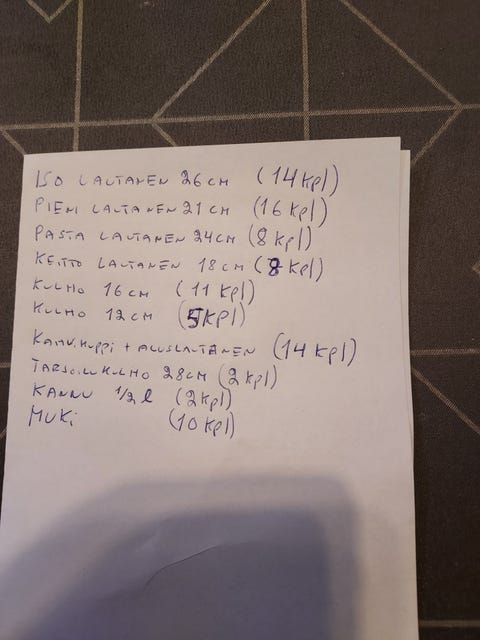 ISO LAUTANEN 26 CM (14 kpl)
PIENI LAUTANEN 21 CM (16 kpl)
PASTA LAUTANEN 24 CM (8 kpl)
KEITTO LAUTANEN 18 CM (8 kpl)
KULHO 16 CM (11 kpl)
KULHO 12 CM (5 kpl)
KAHV.KUPPI + ALUSLAUTANEN (14 kpl)
TARJOILUKULHO 28 CM (2 kpl)
KANNU 1/2 l (2 kpl)
MUKI (10 kpl)